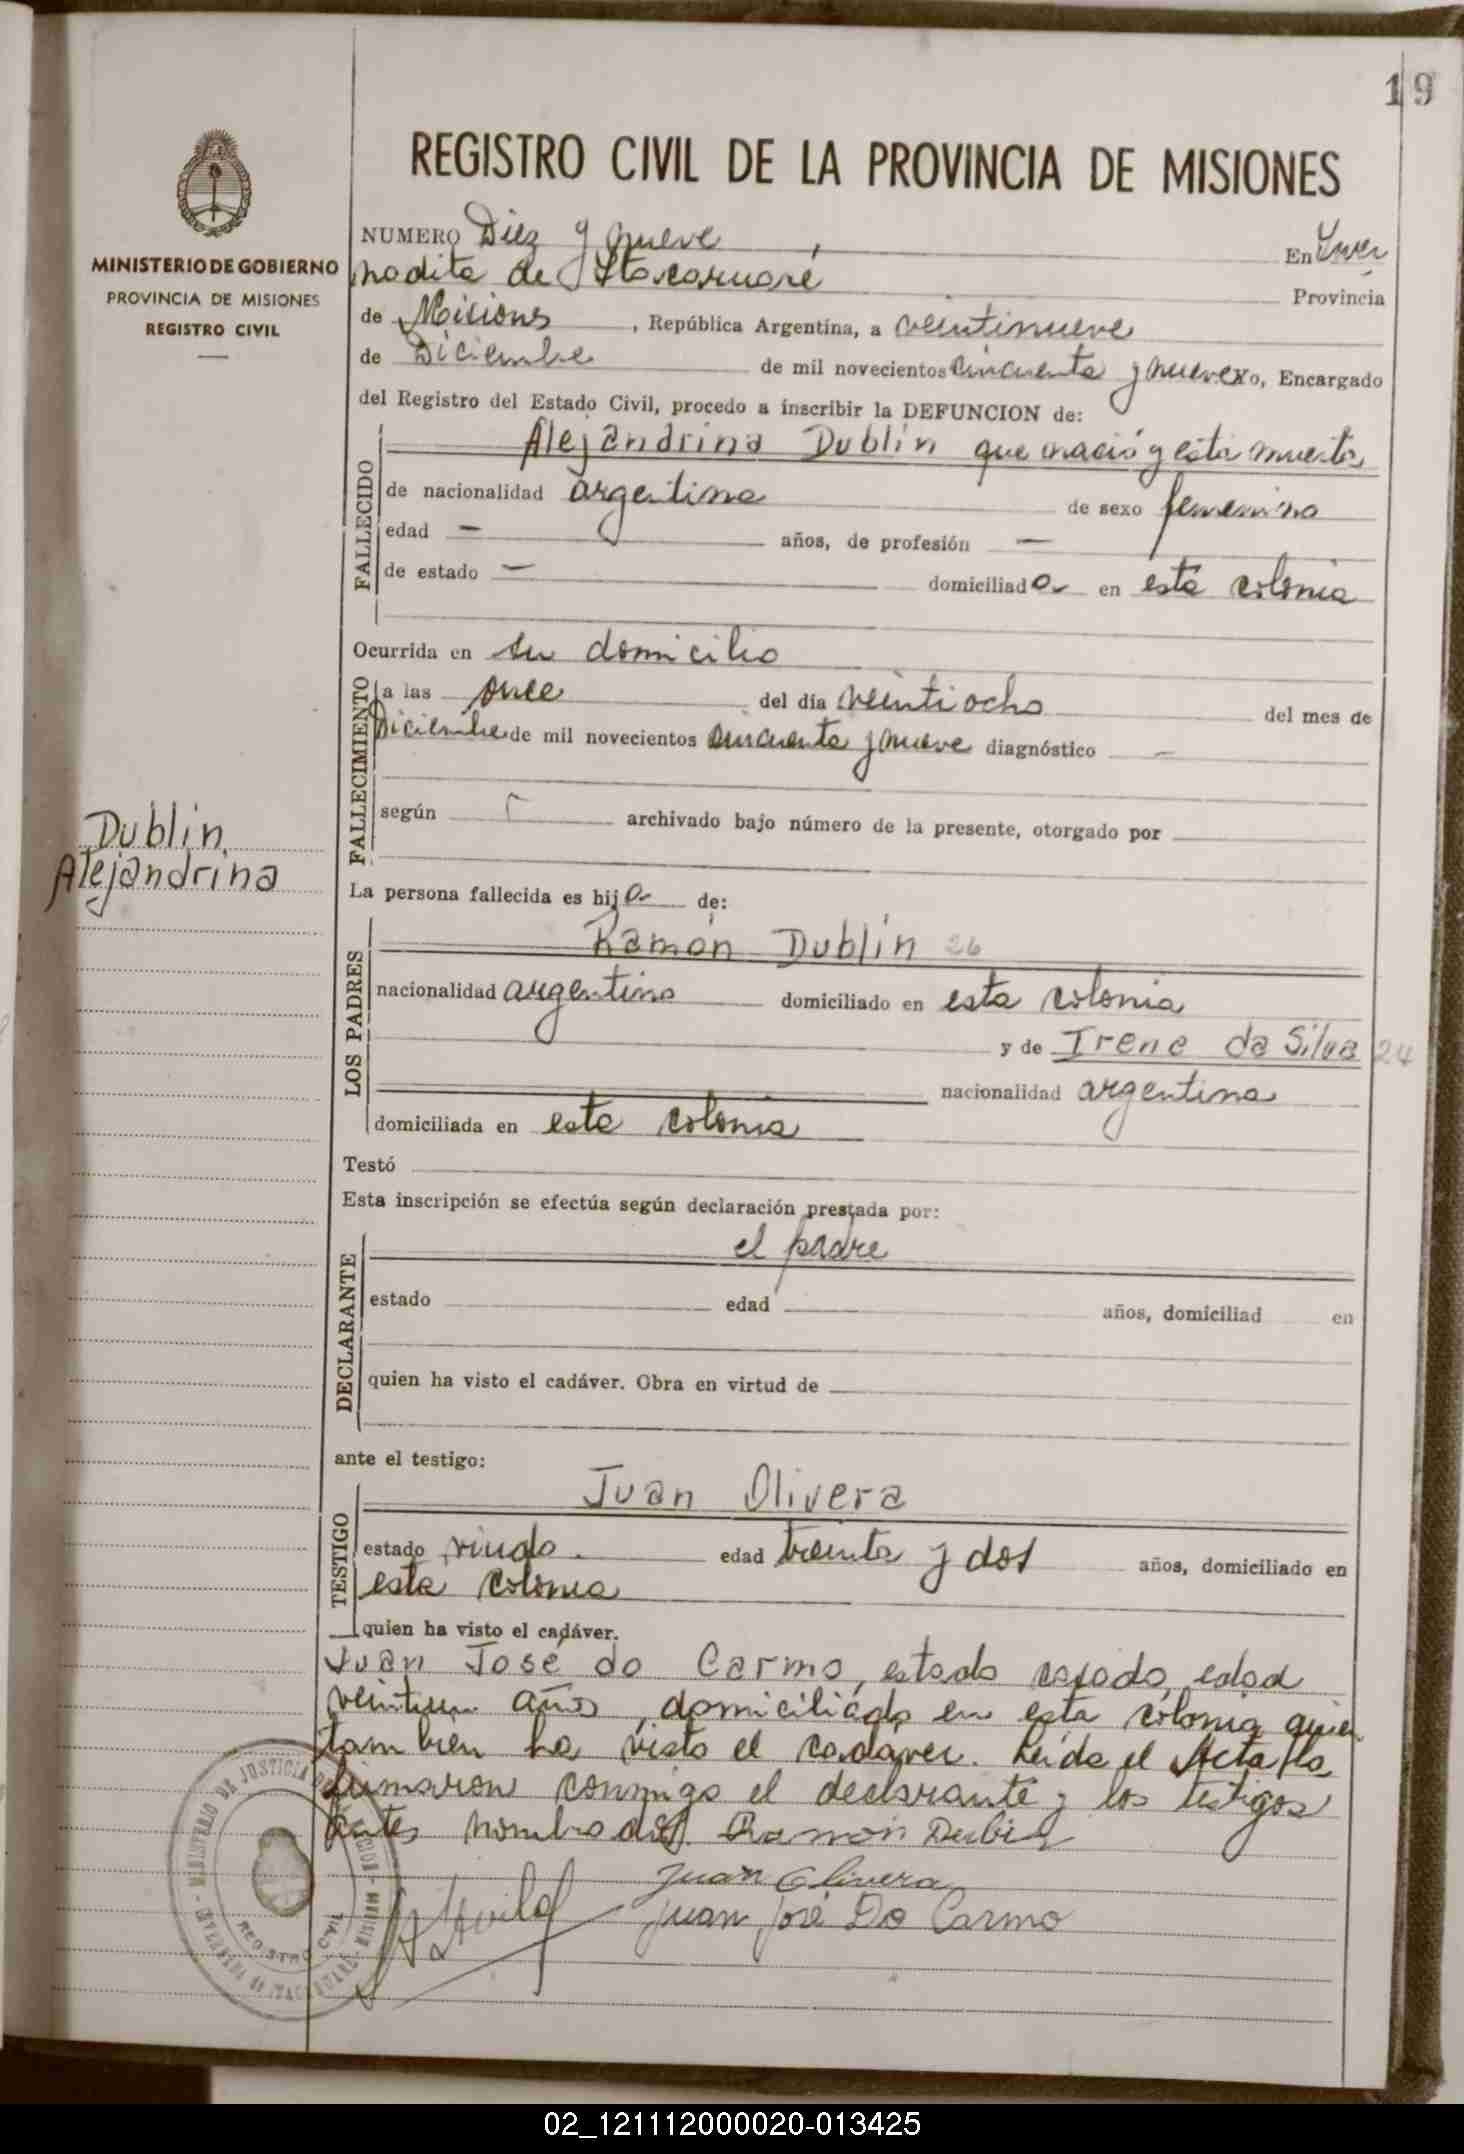 19
REGISTRO CIVIL DE LA PROVINCIA DE MISIONES
MINISTERIO DE GOBIERNO
PROVINCIA DE MISIONES
REGISTRO CIVIL
NUMERO Diez y nueve, En Inver
nadita de Itacaruaré Provincia
de Misiones, República Argentina, a veintinueve
de Diciembre de mil novecientos cincuenta y nueve yo, Encargado
del Registro del Estado Civil, procedo a inscribir la DEFUNCION de:
FALLECIDO
Alejandrina Dublin que nació y esta muerta
de nacionalidad argentina de sexo femenino
edad — años, de profesión —
de estado — domiciliada en esta colonia
Ocurrida en su domicilio
FALLECIMIENTO
a las once del día veintiocho del mes de
Diciembre de mil novecientos cincuenta y nueve diagnóstico —
según archivado bajo número de la presente, otorgado por
Dublin
Alejandrina
La persona fallecida es hija de:
LOS PADRES
Ramón Dublin 26
nacionalidad argentino domiciliado en esta colonia
y de Irene da Silva 24
nacionalidad argentina
domiciliada en esta colonia
Testó
Esta inscripción se efectúa según declaración prestada por:
DECLARANTE
el padre
estado edad años, domiciliad en
quien ha visto el cadáver. Obra en virtud de
ante el testigo:
TESTIGO
Juan Olivera
estado viudo. edad treinta y dos años, domiciliado en
esta colonia
quien ha visto el cadáver.
Juan José do Carmo, estado casado, edad
veintiun años, domiciliado en esta colonia quien
tambien ha visto el cadáver. Leída el Acta la
firmaron conmigo el declarante y los testigos
antes nombrados. Ramón Dublin
Juan Olivera
Juan José Do Carmo
MINISTERIO DE JUSTICIA
REGISTRO CIVIL
02_121112000020-013425